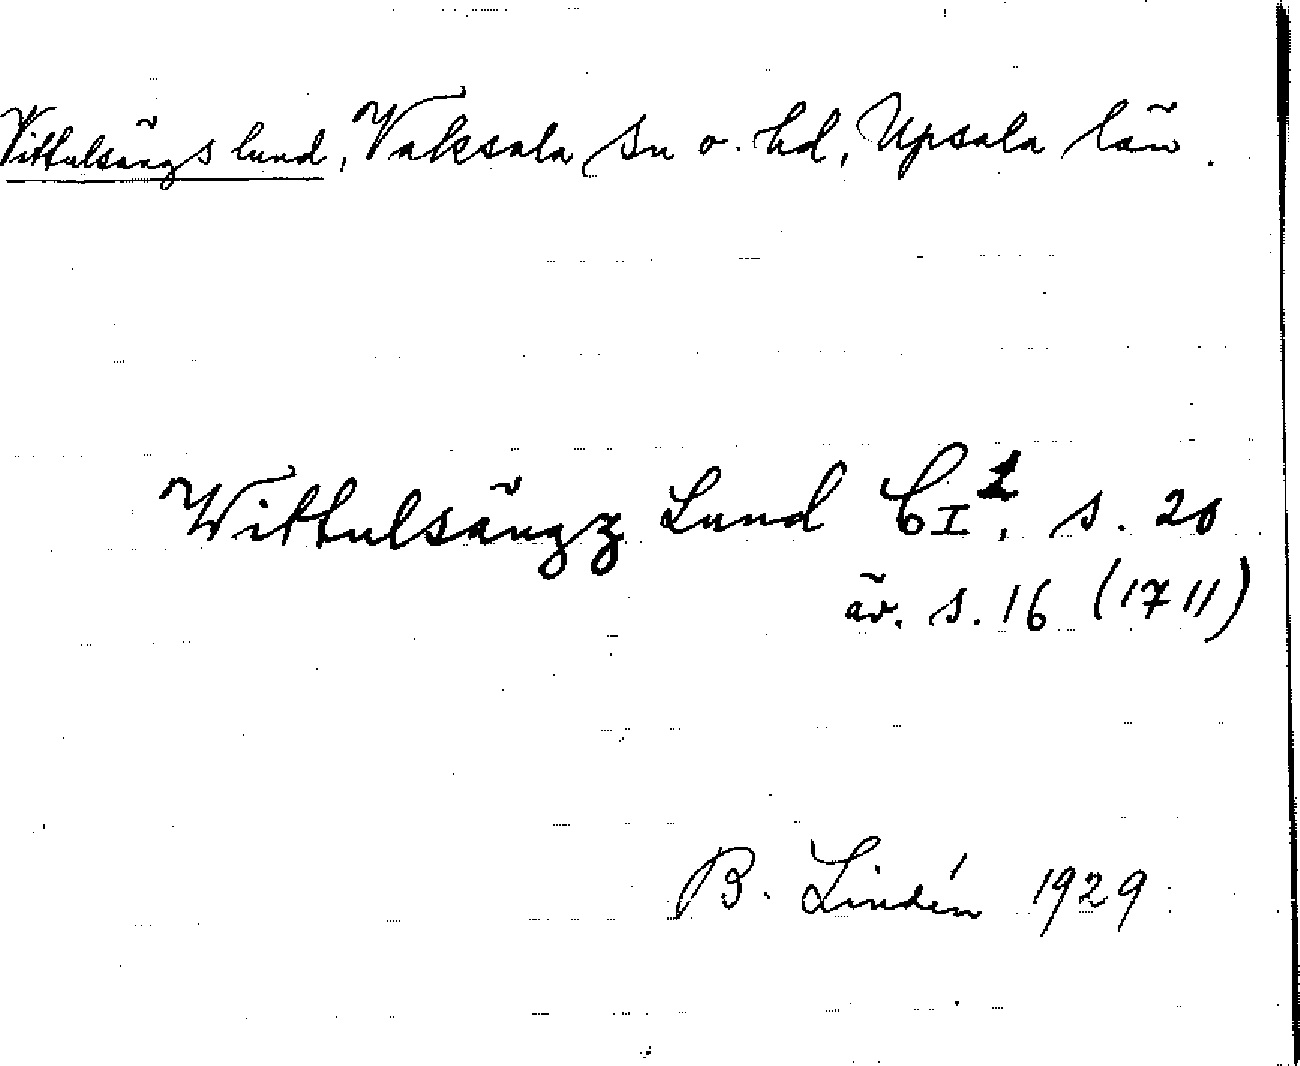 Vittulsängs lund, Vaksala sn o. hd, Upsala län.
Wittulsängz Lund CI¹, s. 20
äv. s. 16 (1711)
B. Lindén 1929